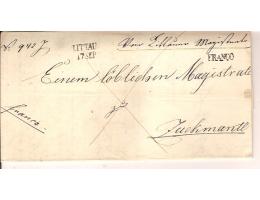 No 940 J
Vom Littauer Magistrate
LITTAU
17 SEP
FRANCO
Einem löblichen Magistrate
zu
franco
Zuckmantl